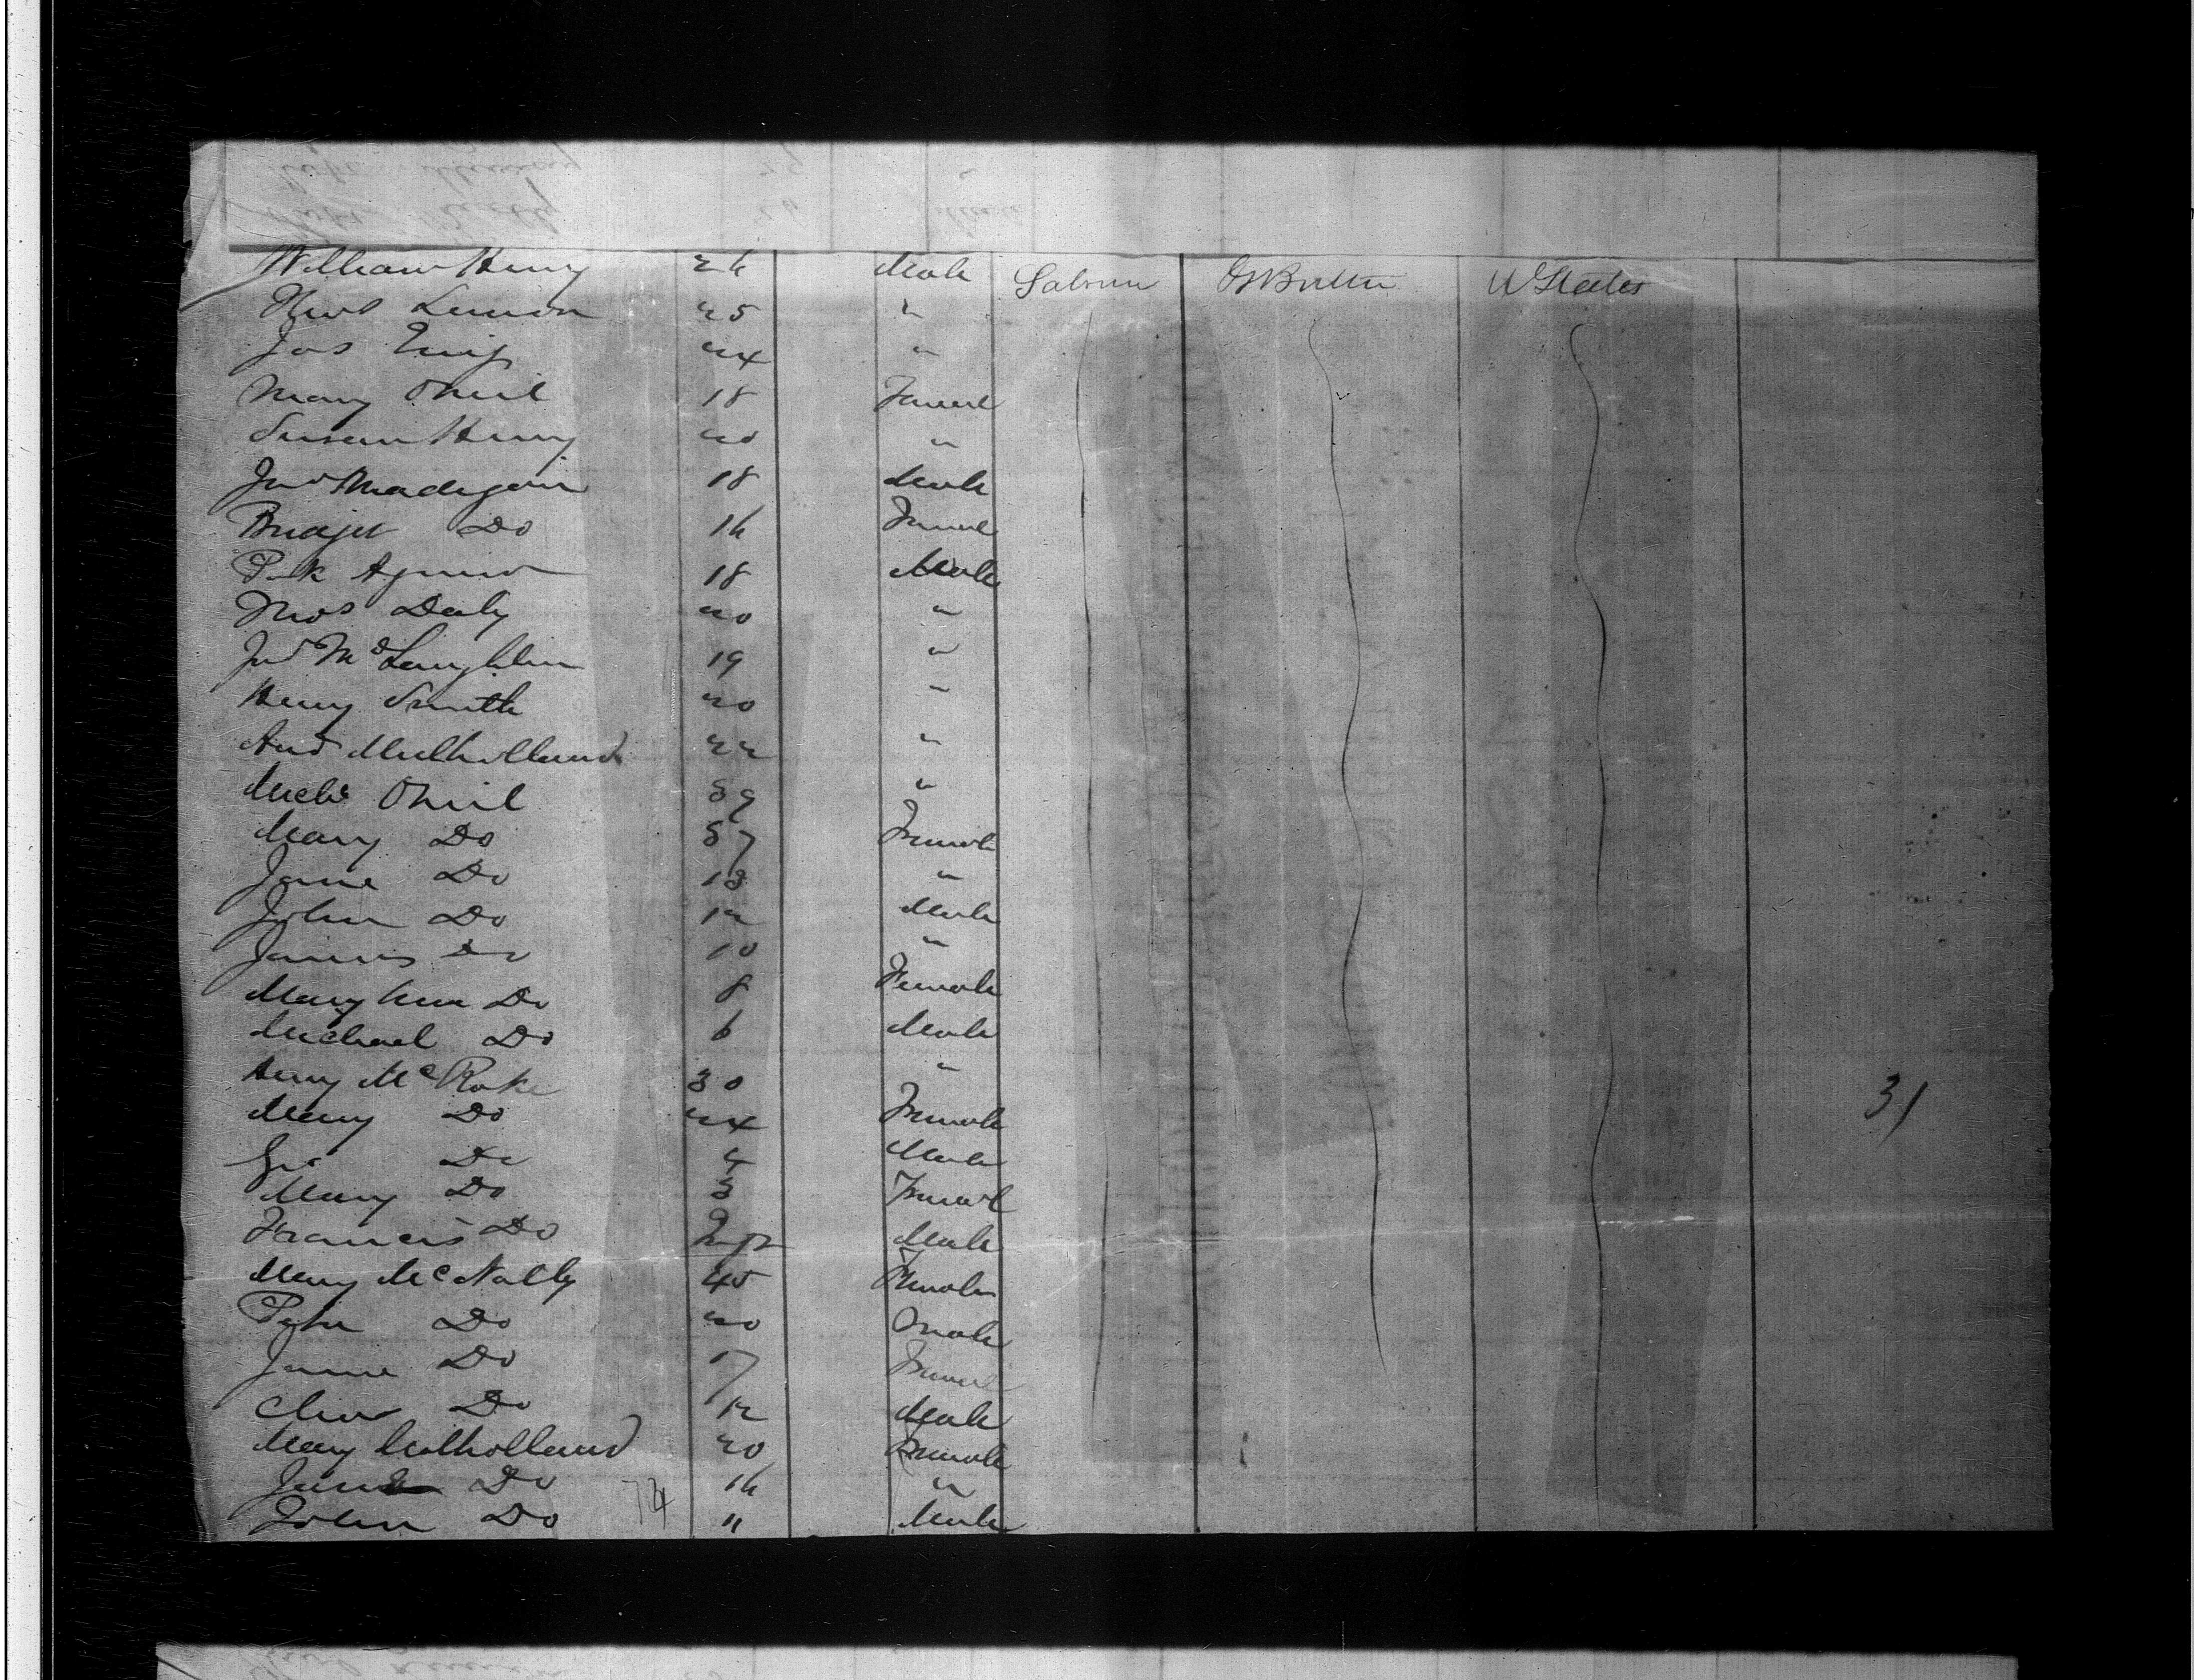 William Henry 26 Male Labourer Gt Britten U States
Thos Lennon 25 "
Jas 24 "
Mary ONeil 18 Femal
Susan Henry 20 "
Jno Madigan 18 Male
Bridget Do 16 Femal
Pak Agnew 18 Male
Thos Daly 20 "
Jno McLaughlin 19 "
Henry Smith 20 "
And Mulholland 22 "
Michl ONeil 59 "
Mary Do 57 Female
Jane Do 13 "
John Do 12 Male
James Do 10 "
Mary Ann Do 8 Female
Michael Do 6 Male
Henry McRoke 30 "
Mary Do 24 Female
Do 4 Male
Mary Do 3 Femal
Francis Do Male
Mary McNally 45 Female
Peter Do 20 Male
Jane Do 17 Femal
Do 12 Male
Mary Mulholland 20 Female
Jane Do 16 "
John Do 11 Male
31
74